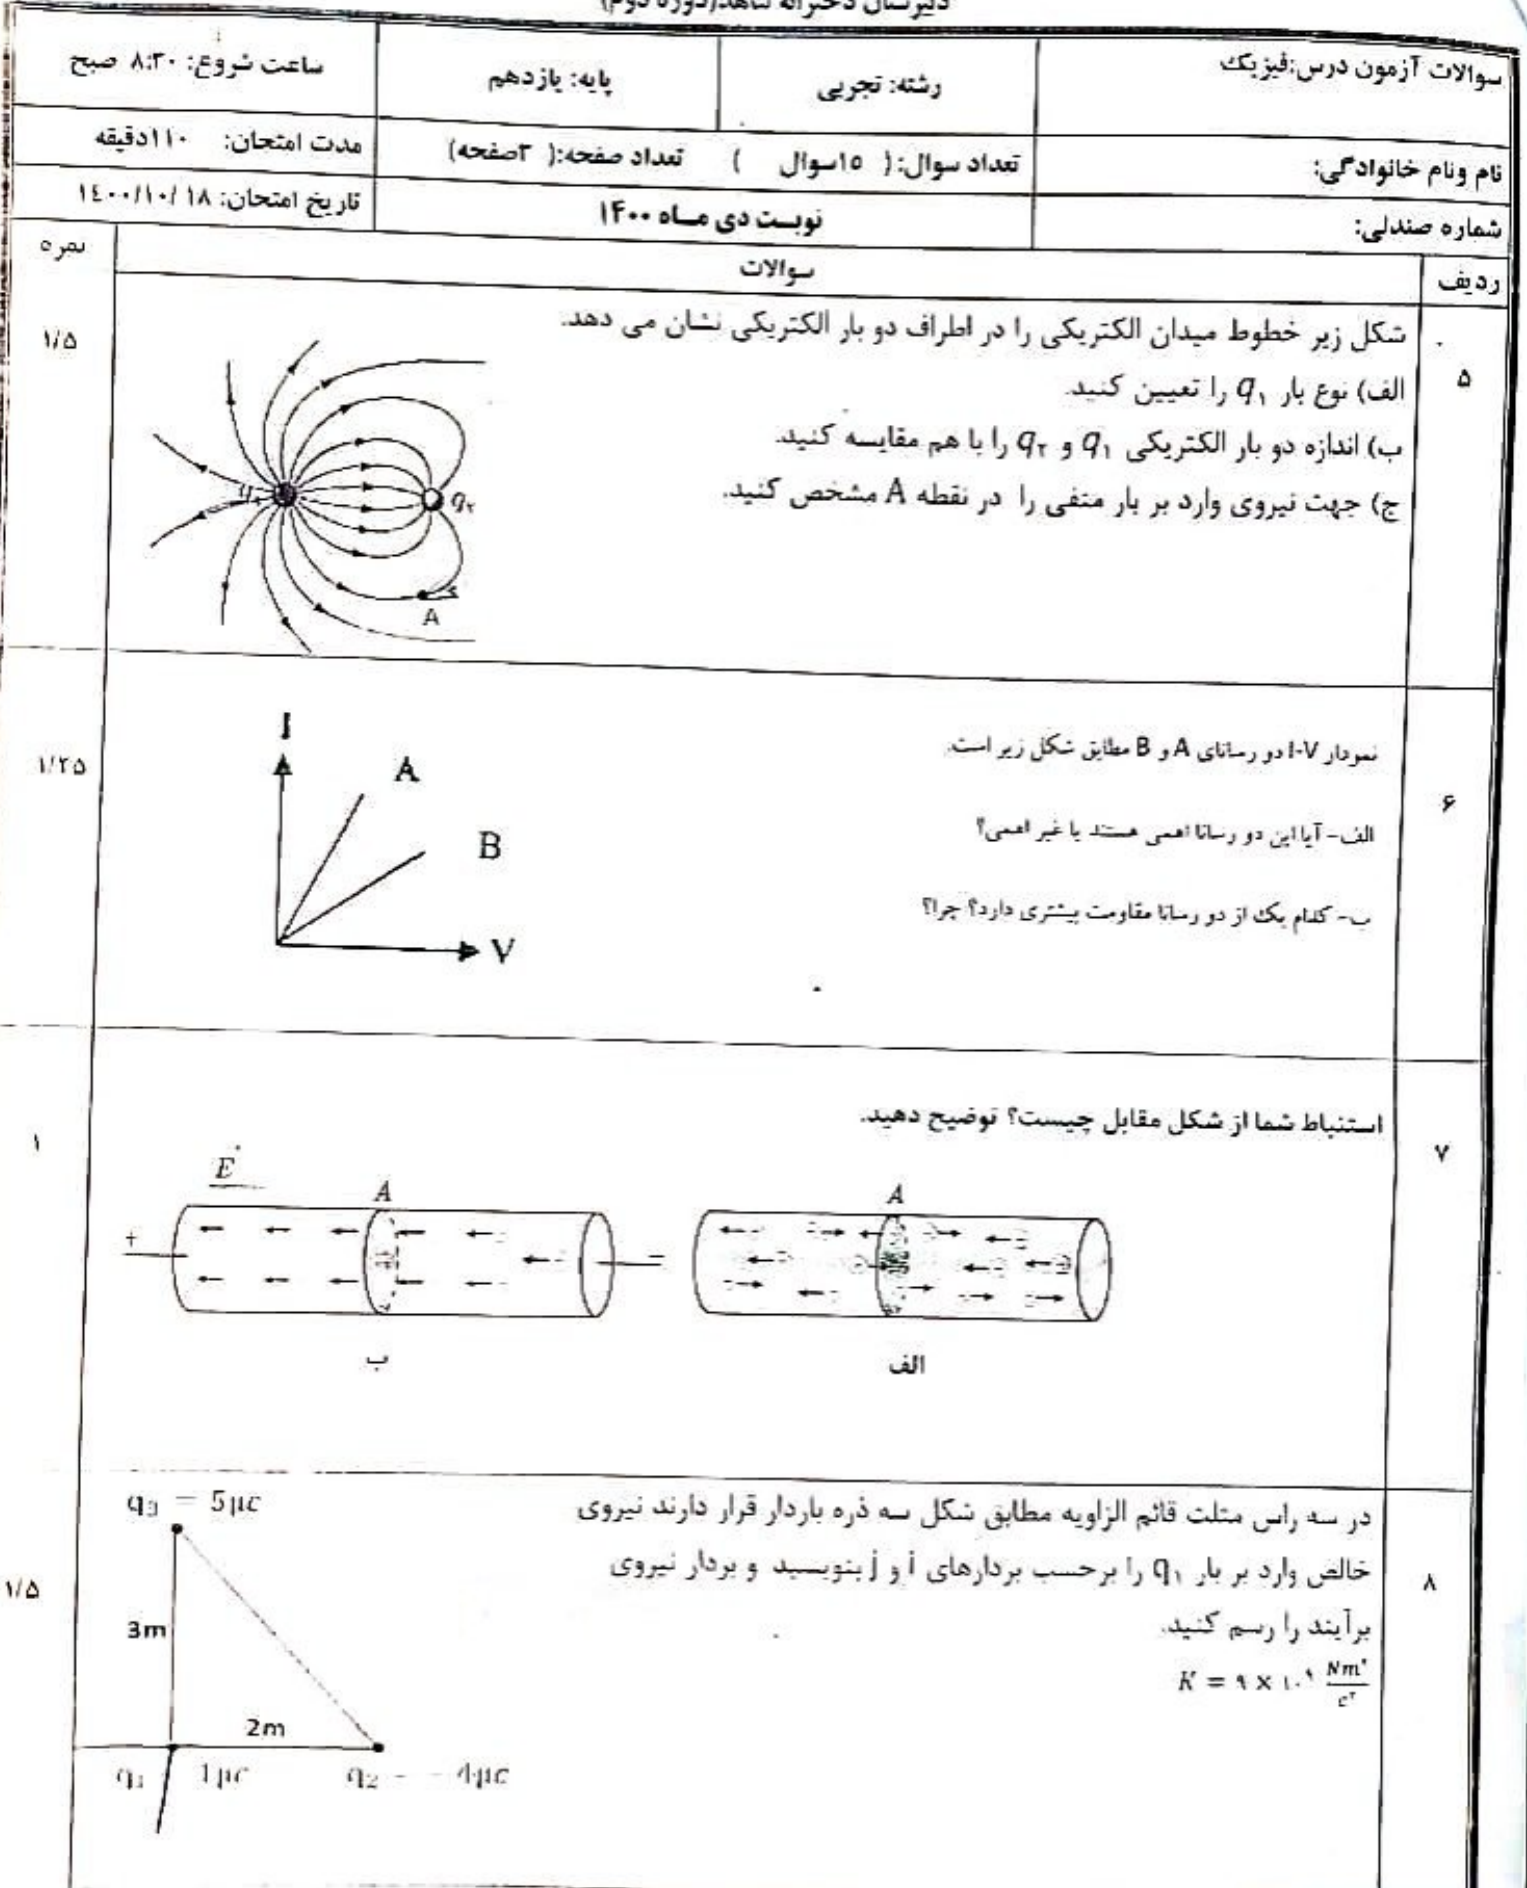 دبیرستان دخترانه شاهد(دوره دوم)
سوالات آزمون درس:فیزیک
رشته: تجربی
پایه: یازدهم
ساعت شروع: ۸:۳۰ صبح
نام ونام خانوادگی:
تعداد سوال:( ۱۵سوال )
تعداد صفحه:( ۳صفحه)
مدت امتحان: ۱۱۰دقیقه
شماره صندلی:
نوبت دی مـاه ۱۴۰۰
تاریخ امتحان: ۱۸ /۱۴۰۰/۱۰
ردیف
سوالات
نمره
۵
شکل زیر خطوط میدان الکتریکی را در اطراف دو بار الکتریکی نشان می دهد.
الف) نوع بار q۱ را تعیین کنید.
ب) اندازه دو بار الکتریکی q۱ و q۲ را با هم مقایسه کنید.
ج) جهت نیروی وارد بر بار منفی را در نقطه A مشخص کنید.
۱/۵
q۲
A
۶
نمودار I-V دو رسانای A و B مطابق شکل زیر است.
الف- آیا این دو رسانا اهمی هستند یا غیر اهمی؟
ب- کدام یک از دو رسانا مقاومت بیشتری دارد؟ چرا؟
۱/۲۵
I
A
B
V
۷
استنباط شما از شکل مقابل چیست؟ توضیح دهید.
۱
E
A
A
+
−
الف
ب
۸
در سه راس متلت قائم الزاویه مطابق شکل سه ذره باردار قرار دارند نیروی
خالص وارد بر بار q۱ را برحسب بردارهای i و j بنویسید و بردار نیروی
برآیند را رسم کنید.
K = ۹ × ۱۰^۹ Nm^۲/c^۲
۱/۵
q3 = 5μc
3m
2m
q1 1μc
q2 = −4μc